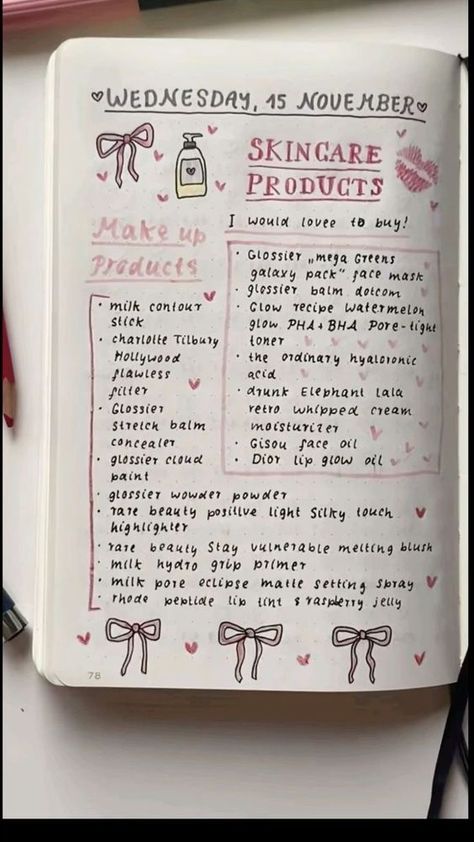 WEDNESDAY, 15 NOVEMBER
SKINCARE
PRODUCTS
I would lovee to buy!
• Glossier „mega Greens
galaxy pack" face mask
• glossier balm dotcom
• Glow recipe watermelon
glow PHA+BHA Pore-tight
toner
• the ordinary hyaloronic
acid
• drunk Elephant lala
retro whipped cream
moisturizer
• Gisou face oil
• Dior lip glow oil
Make up
Products
• milk contour
stick
• charlotte Tilbury
Hollywood
flawless
filter
• Glossier
stretch balm
concealer
• glossier cloud
paint
• glossier wowder powder
• rare beauty positive light silky touch
highlighter
• rare beauty Stay vulnerable melting blush
• milk hydro grip primer
• milk pore eclipse matte setting spray
• rhode peptide lip tint & raspberry jelly
78